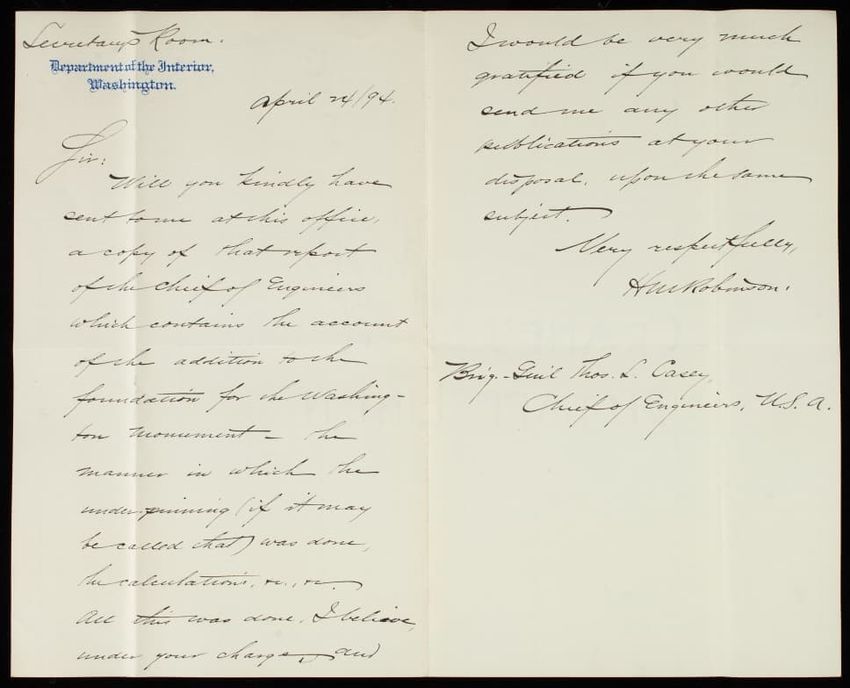 Secretary's Room.
Department of the Interior,
Washington.
April 24/94.
Sir:
Will you kindly have
sent to me at this office,
a copy of that report
of the Chief of Engineers
which contains the account
of the addition to the
foundation for the Washing-
ton Monument – the
manner in which the
under-pinning (if it may
be called that) was done,
the calculations, &c., &c.
All this was done, I believe,
under your charge, and
I would be very much
gratified if you would
send me any other
publications at your
disposal, upon the same
subject.
Very respectfully,
H M Robinson.
Brig.-Gen'l Thos. L. Casey,
Chief of Engineers, U.S.A.